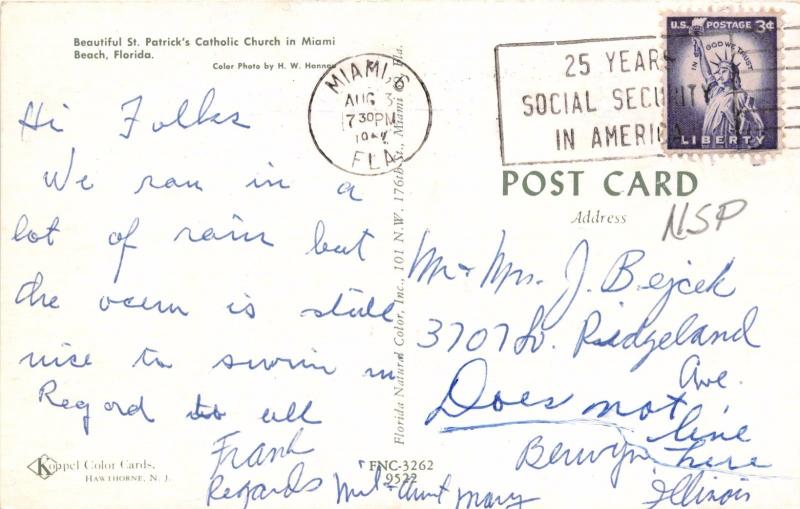 Beautiful St. Patrick's Catholic Church in Miami
Beach, Florida.
Color Photo by H. W. Hannau
Hi Folks
We ran in a
lot of rain but
the ocean is still
nice to swim in
Regard to all
Frank
Regards
Aunt Mary
Koppel Color Cards,
HAWTHORNE, N. J.
Florida Natural Color, Inc., 101 N.W. 176th St., Miami Fla.
FNC-3262
9522
MIAMI,
AUG 3
7 30 PM
FLA
25 YEARS
SOCIAL SECURITY
IN AMERICA
U.S. POSTAGE 3¢
IN GOD WE TRUST
LIBERTY
POST CARD
Address
NSP
Mr + Mrs. J. Bejcek
3707 So. Ridgeland
Ave.
Does not
live
here
Berwyn
Illinois